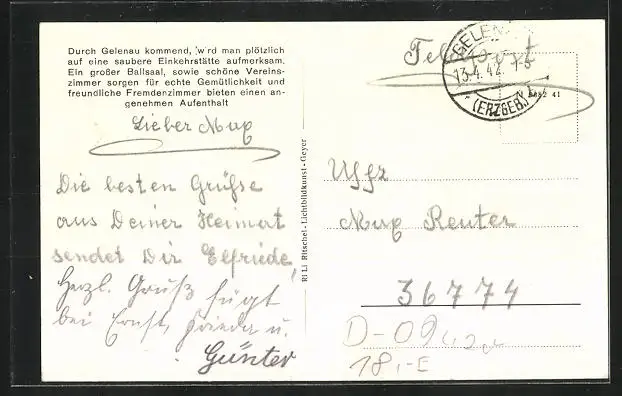 Durch Gelenau kommend, wird man plötzlich
auf eine saubere Einkehrstätte aufmerksam.
Ein großer Ballsaal, sowie schöne Vereins-
zimmer sorgen für echte Gemütlichkeit und
freundliche Fremdenzimmer bieten einen an-
genehmen Aufenthalt
Lieber Max
Die besten Grüße
aus Deiner Heimat
sendet Dir Elfriede,
Herzl. Gruß fügt
bei Ernst, Frieda u.
Günter
Ri Li Ritschel - Lichtbildkunst - Geyer
Feldpost
GELENAU
13.4.42
(ERZGEB.)
Uffz
Max Reuter
36774
D-09
18,-E